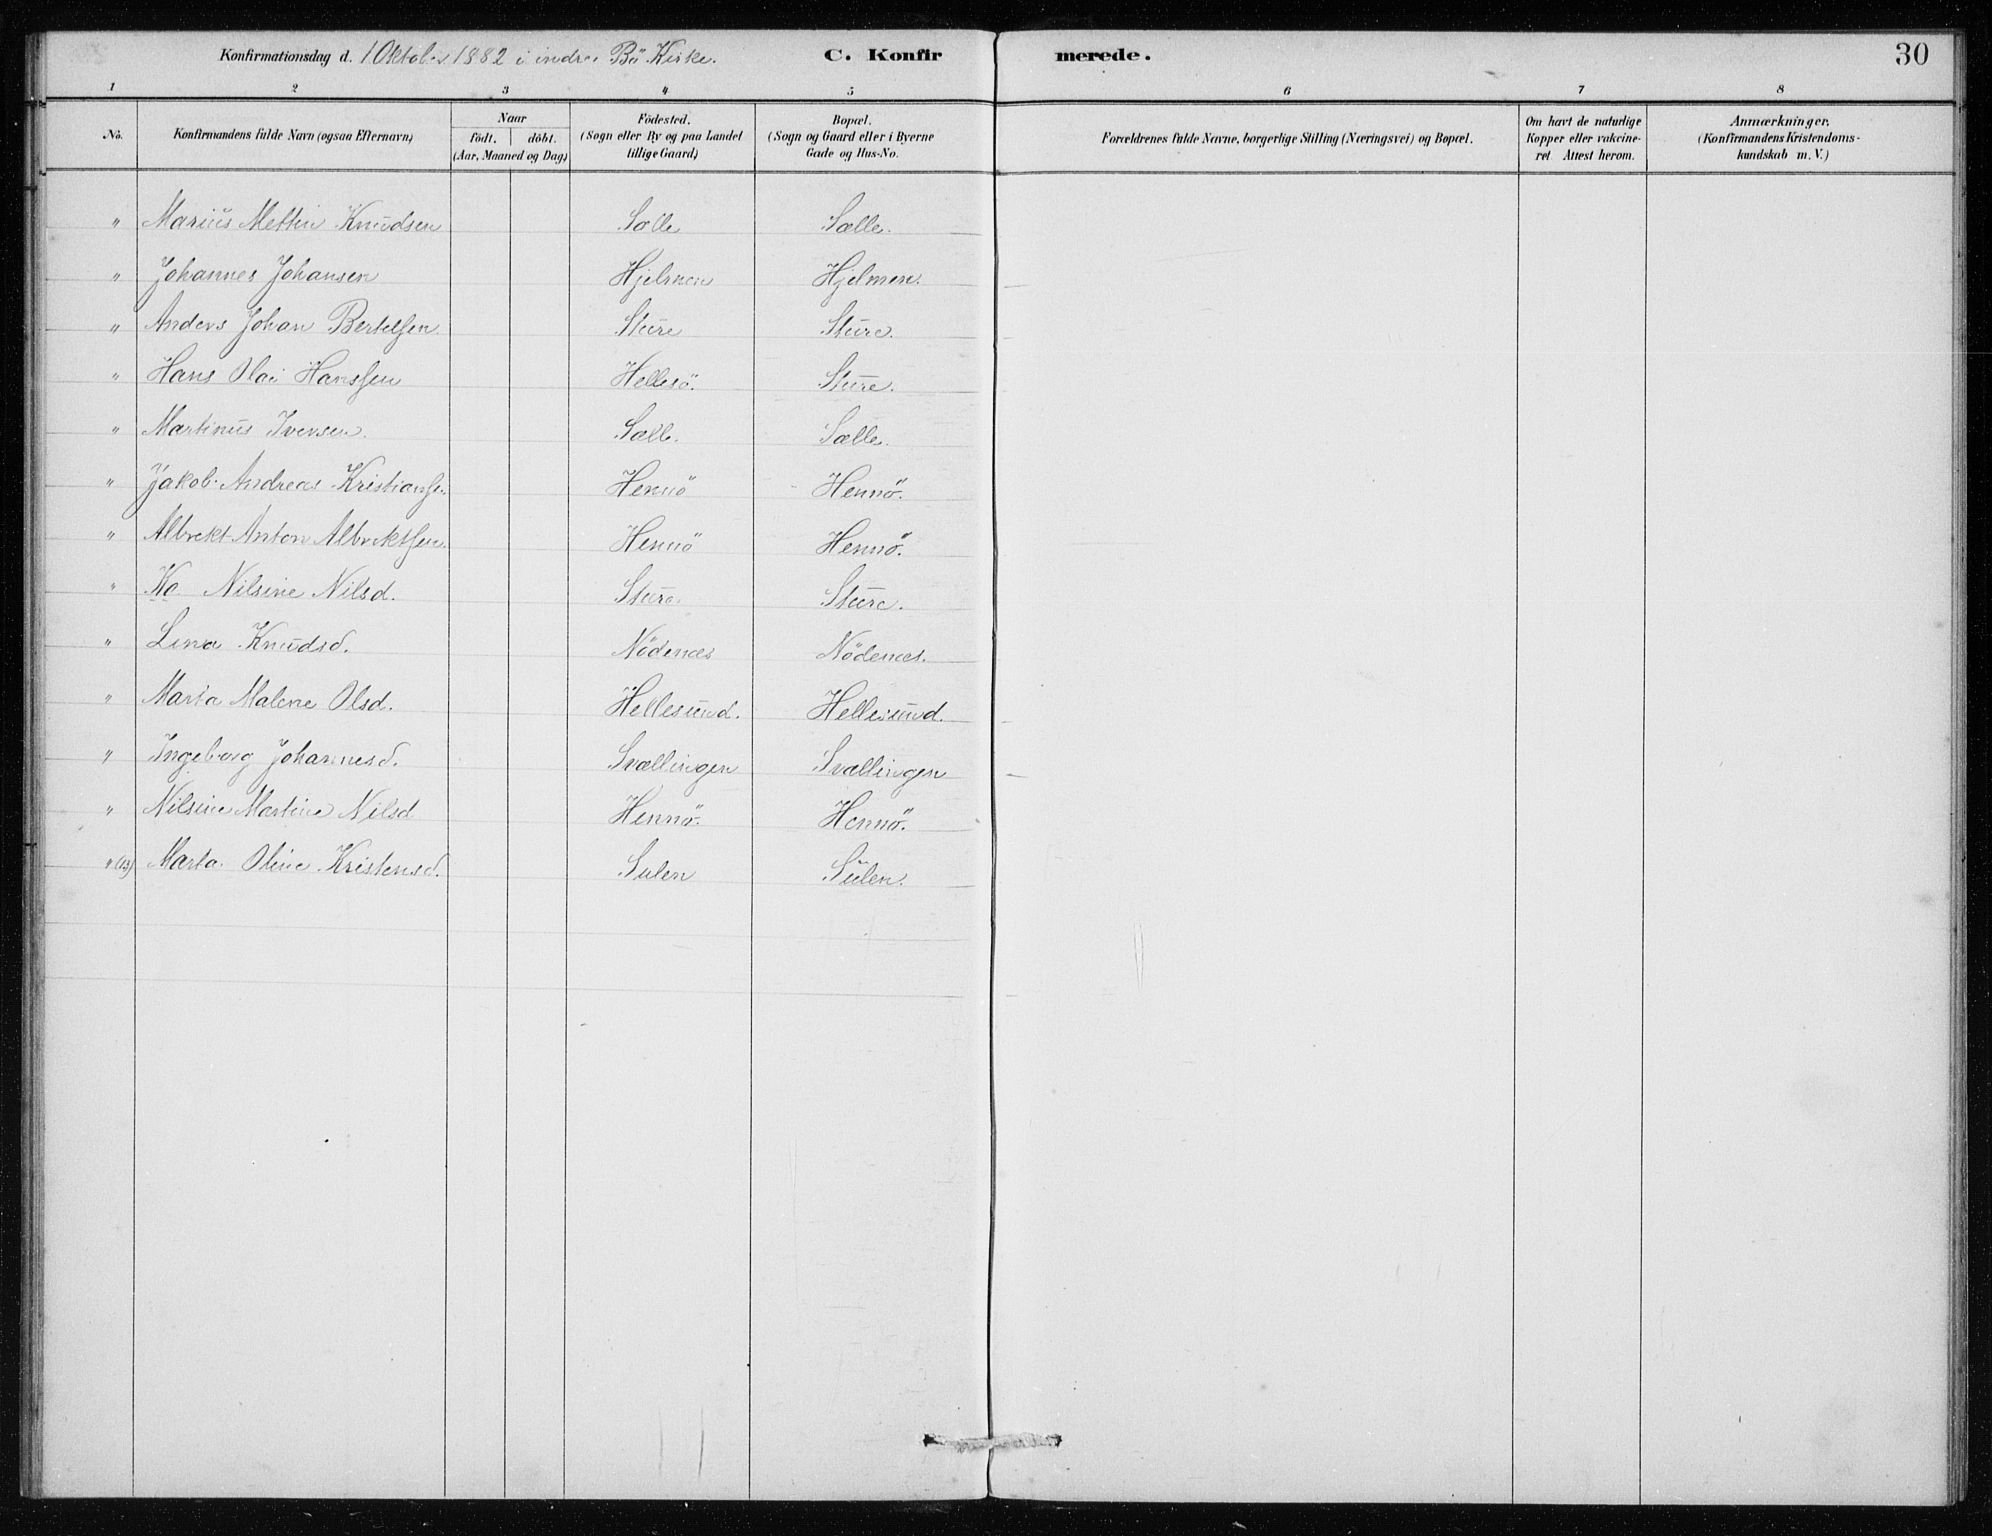 Konfirmationsdag d. 1 Oktober 1882 i indre Bö Kirke. C. Konfirmerede. 30
1 2 3 4 5 6 7 8
No. Konfirmandens fulde Navn (ogsaa Efternavn) Naar födt. döbt. (Aar, Maaned og Dag) Födested. (Sogn eller By og paa Landet tillige Gaard) Bopæl. (Sogn og Gaard eller i Byerne Gade og Hus-No. Forældrenes fulde Navne, borgerlige Stilling (Næringsvei) og Bopæl. Om havt de naturlige Kopper eller vakcineret. Attest herom. Anmærkninger. (Konfirmandens Kristendomskundskab m. V.)
" Marius Knudsen Sælle Sælle.
" Johannes Johansen Hjelmen Hjelmen.
" Anders Johan Bertelsen Sture Sture.
" Hans Olai Hanssen Hellesö. Sture.
" Martinus Iversen. Sælle. Sælle.
" Jakob Andreas Kristiansen Hennö Hennö.
" Albrekt Anton Albrektsen Hennö Hennö.
" Nilsine Nilsd. Sture. Sture.
" Lina Knudsd. Nödenes Nödenes.
" Marta Malene Olsd. Hellesund. Hellesund.
" Ingeborg Johannesd. Svællingen Svællingen
" Nilsine Martine Nilsd Hennö. Hennö.
" (13) Marta Oline Kristensd. Sulen Sulen.